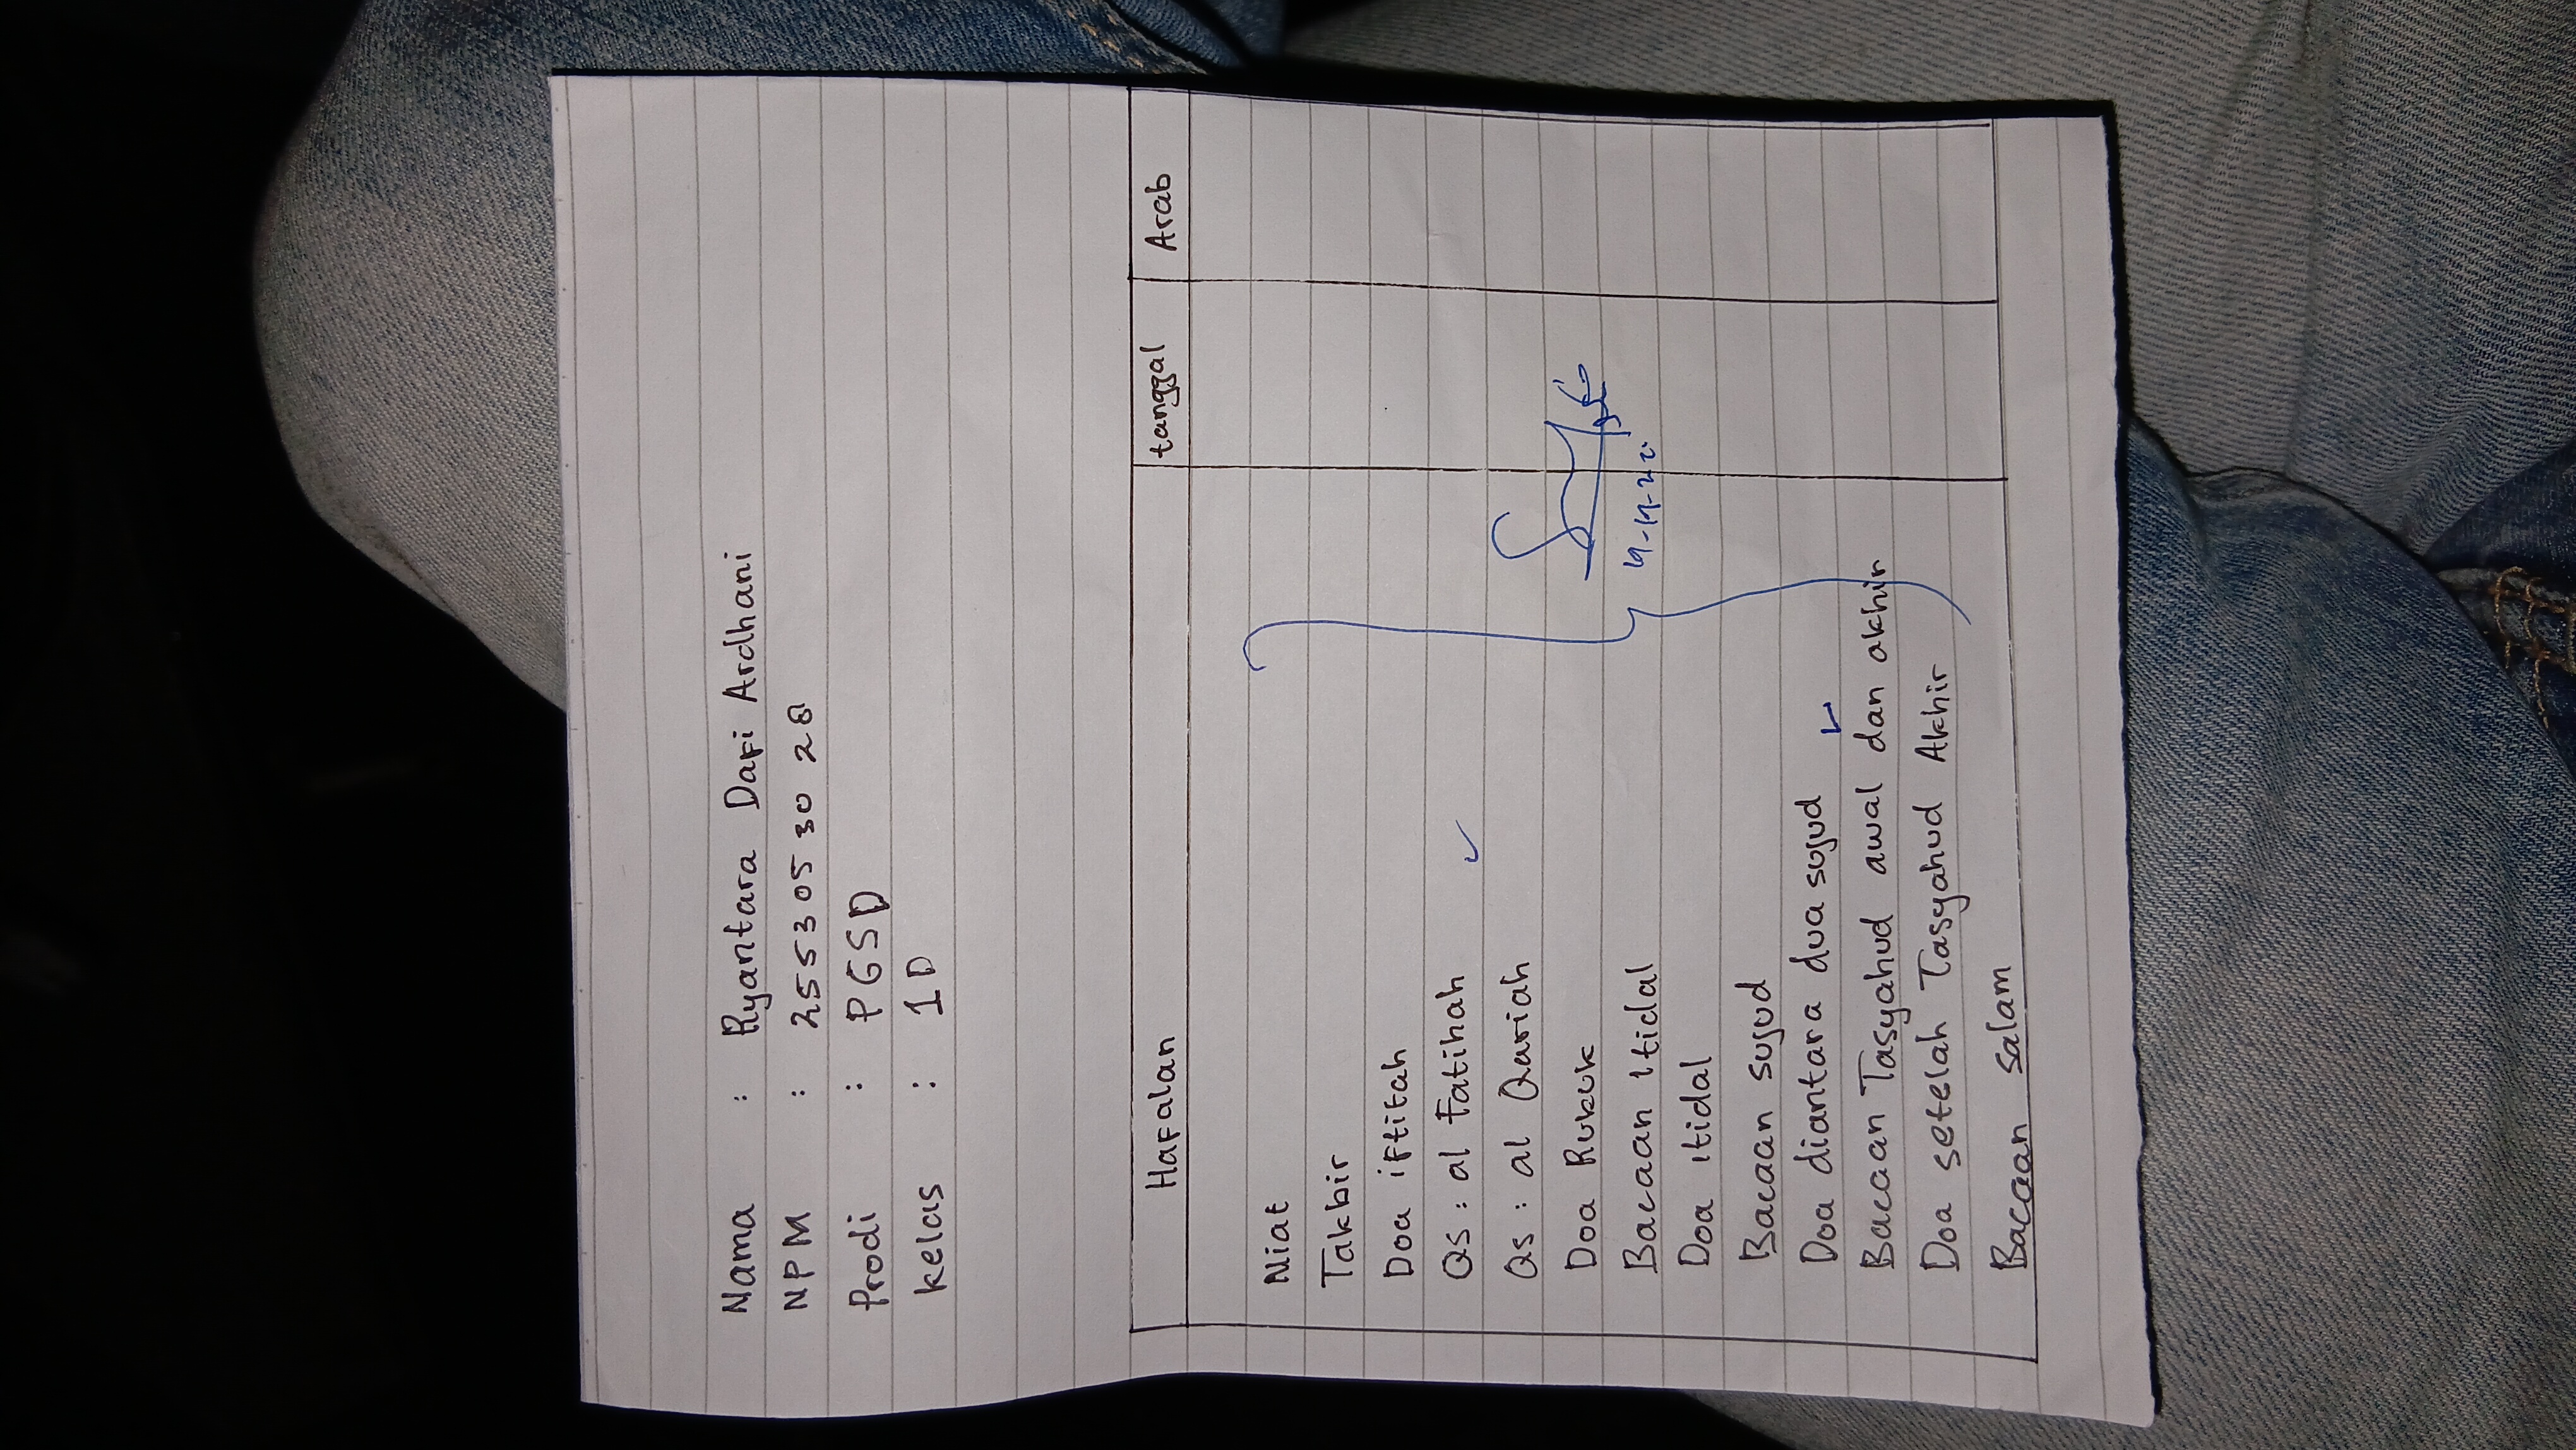 Nama : Ryantara Dafi Ardhani
NPM : 2553053028
Prodi : PGSD
kelas : 1D
Hafalan tanggal Arab
Niat
Takbir
Doa iftitah
QS : al Fatihah ✓
QS : al Qariah
Doa Rukuk
Bacaan Itidal
Doa itidal
Bacaan sujud
Doa diantara dua sujud ✓
Bacaan Tasyahud awal dan akhir
Doa setelah Tasyahud Akhir
Bacaan salam